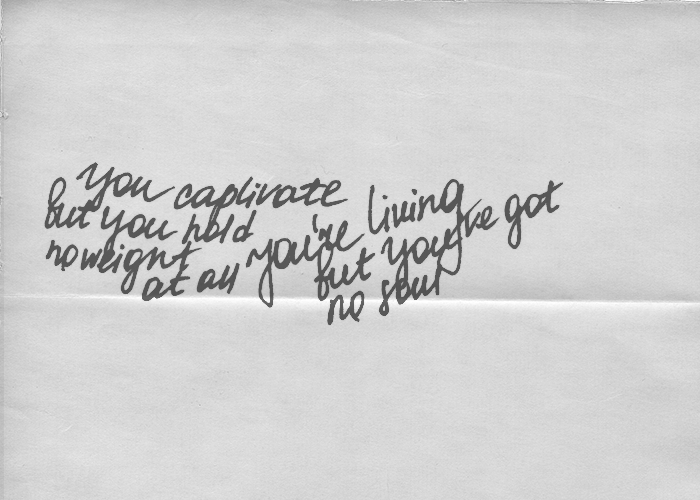 You captivate
but you hold
no weight
at all
you're living
but you've got
no soul